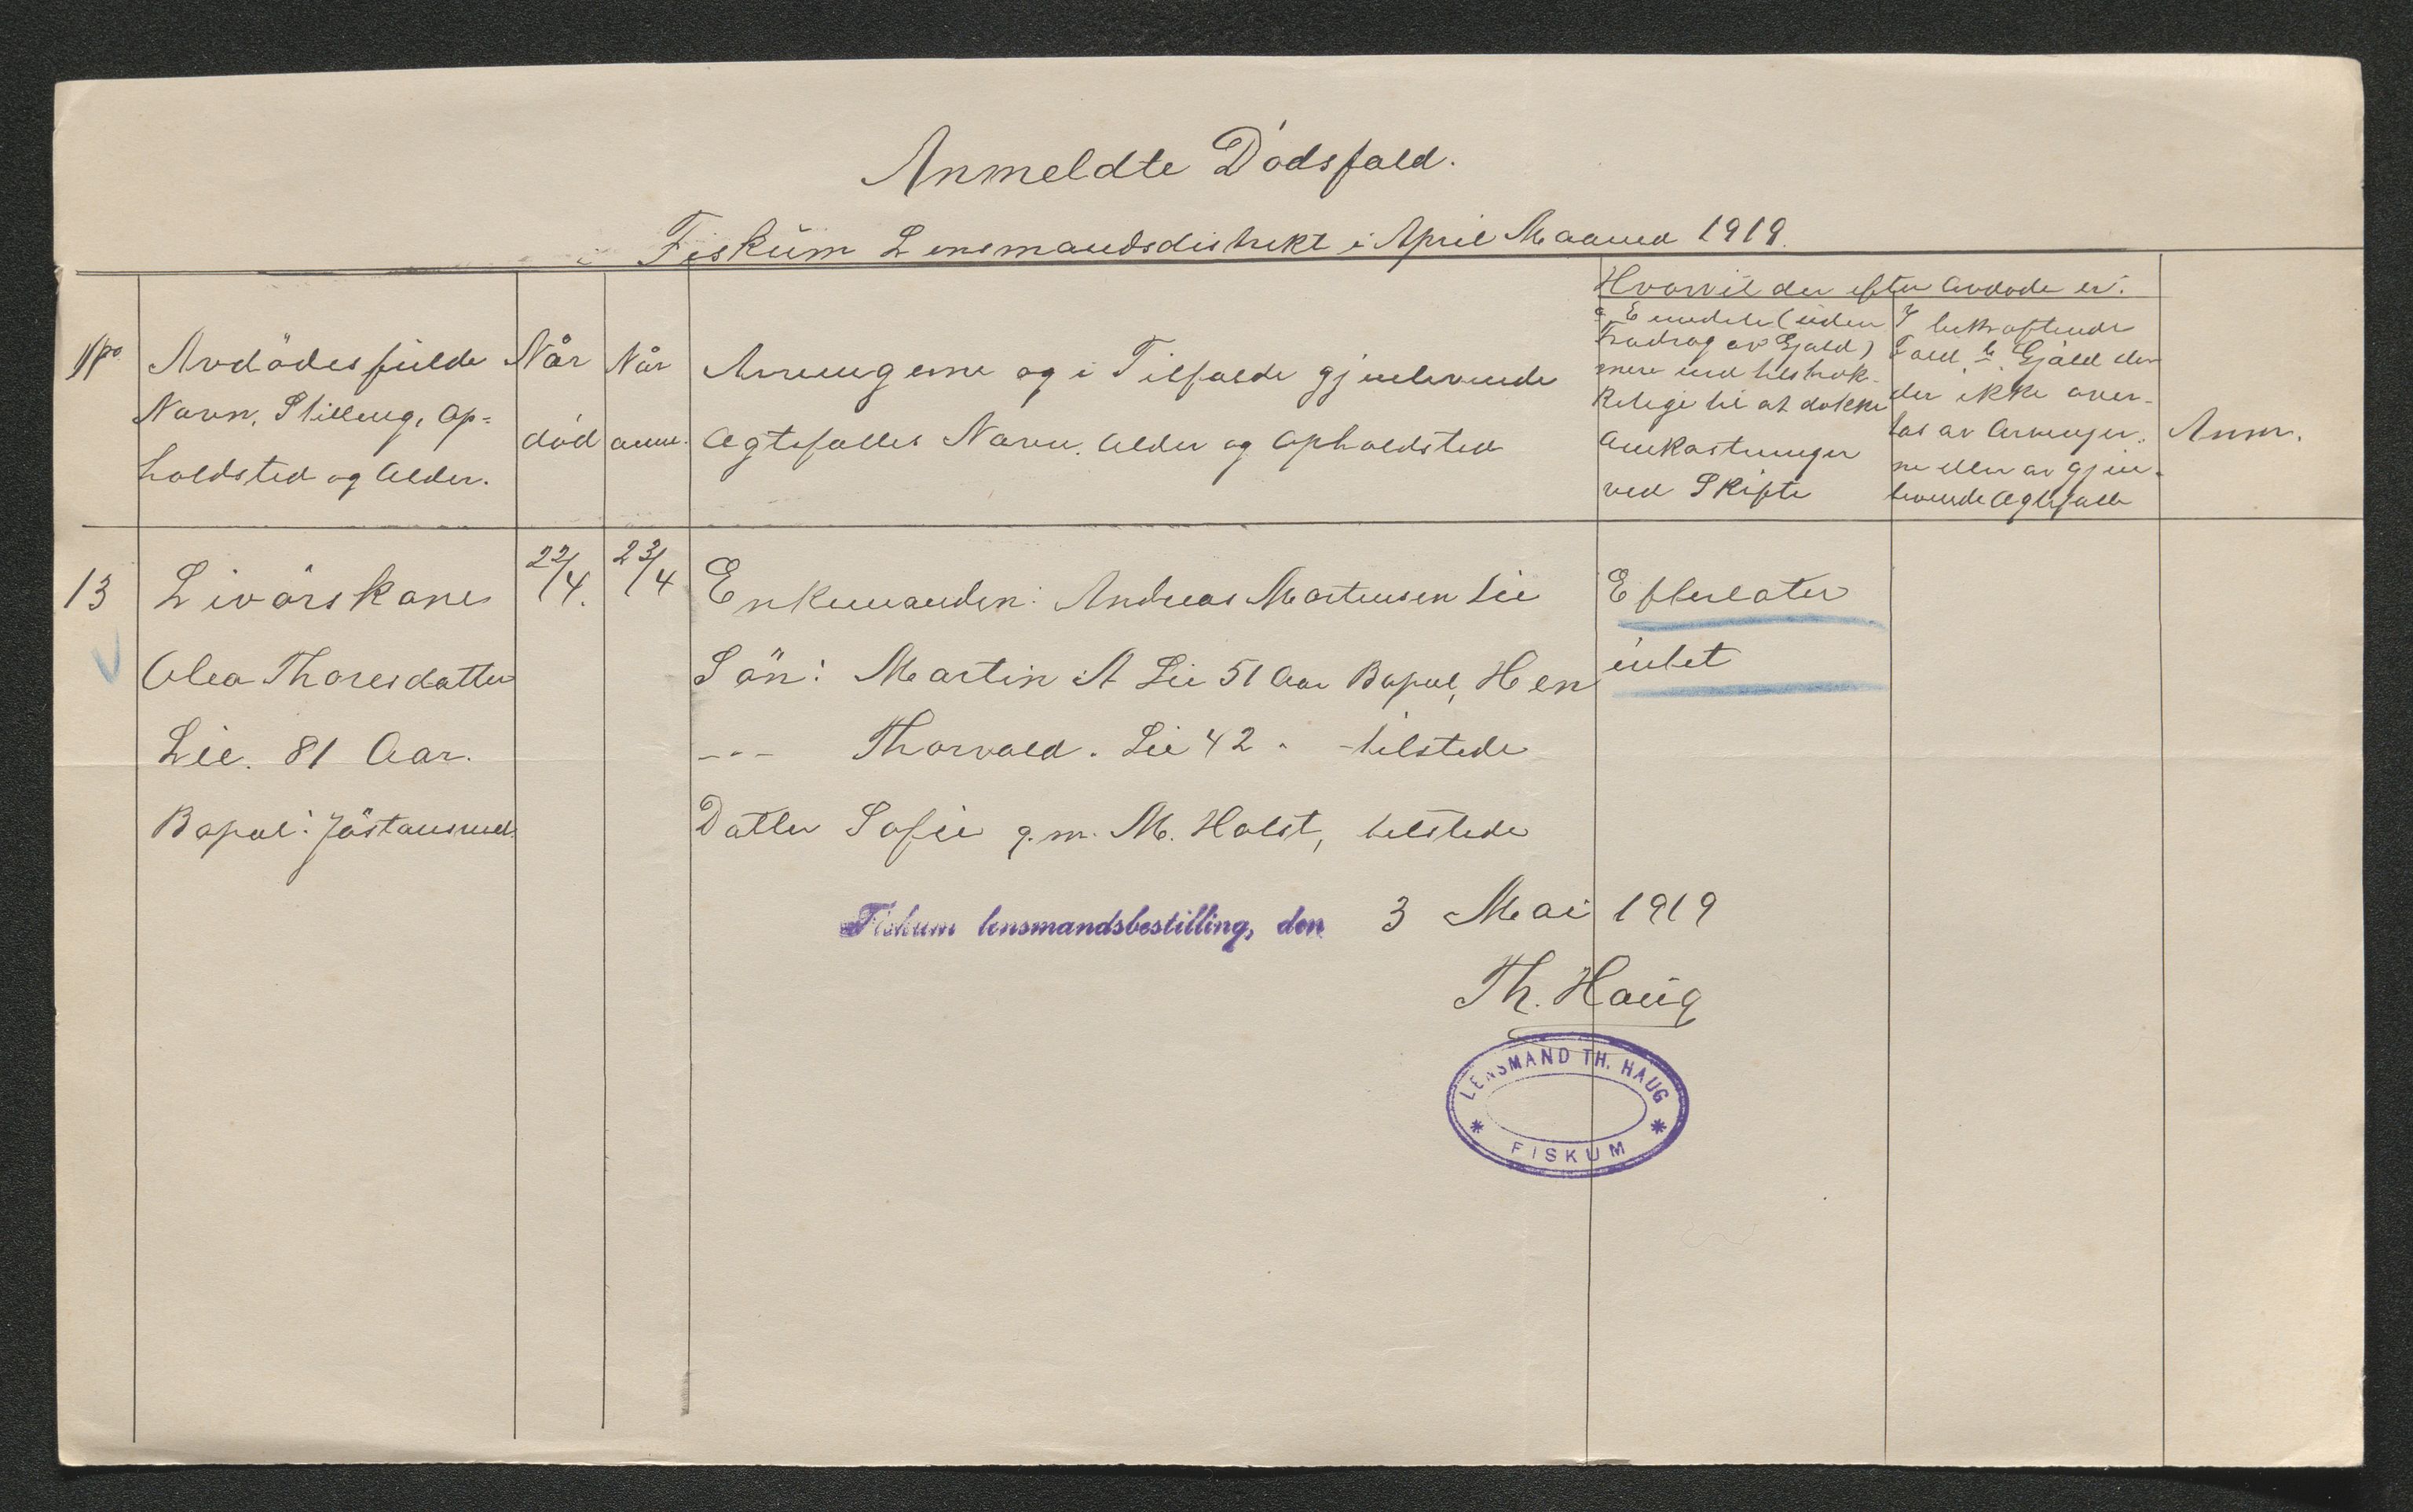 Anmeldte Dödsfald.
i Fiskum Lensmandsdistrikt i April Maaned 1919.
No
Avdödes fulde
Navn, Stilling, Op=
holdsted og Alder.
Når
död
Når
anm.
Arvingerne og i Tilfælde gjenlevende
Ægtefælles Navn, Alder og Opholdsted
Hvorvit der efter Avdøde er:
a, Eiendele (uden
Fradrag av Gjæld)
mere end tilstræk-
kelige til at dække
Omkostninger
ved Skifte
I bekræftende
Fald b. Gjæld den
der ikke over-
tas av Arvinger-
ne eller av gjen-
levende Ægtefælle
Anm.
13
Livörskone
Olea Thoresdatter
Lie. 81 Aar.
Bopæl: Jöstansrud
22/4.
23/4
Enkemanden: Andreas Martensen Lie
Sön: Martin A Lie 51 Aar Bopæl, Hen
--- Thorvald. Lie 42 " - tilstede
Datter Sofie g.m. M. Holst, tilstede
Efterlater
intet
Fiskum lensmandsbestilling, den 3 Mai 1919
Th. Haug
LENSMAND TH. HAUG
* FISKUM *